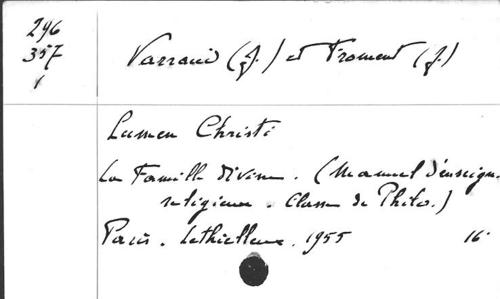 296
357
1
Varraud (J.) et Froment (J.)
Lumen Christi
La Famille divine. (Manuel d'enseign.
religieux. Classe de Philo.)
Paris. Lethielleux. 1955 16°